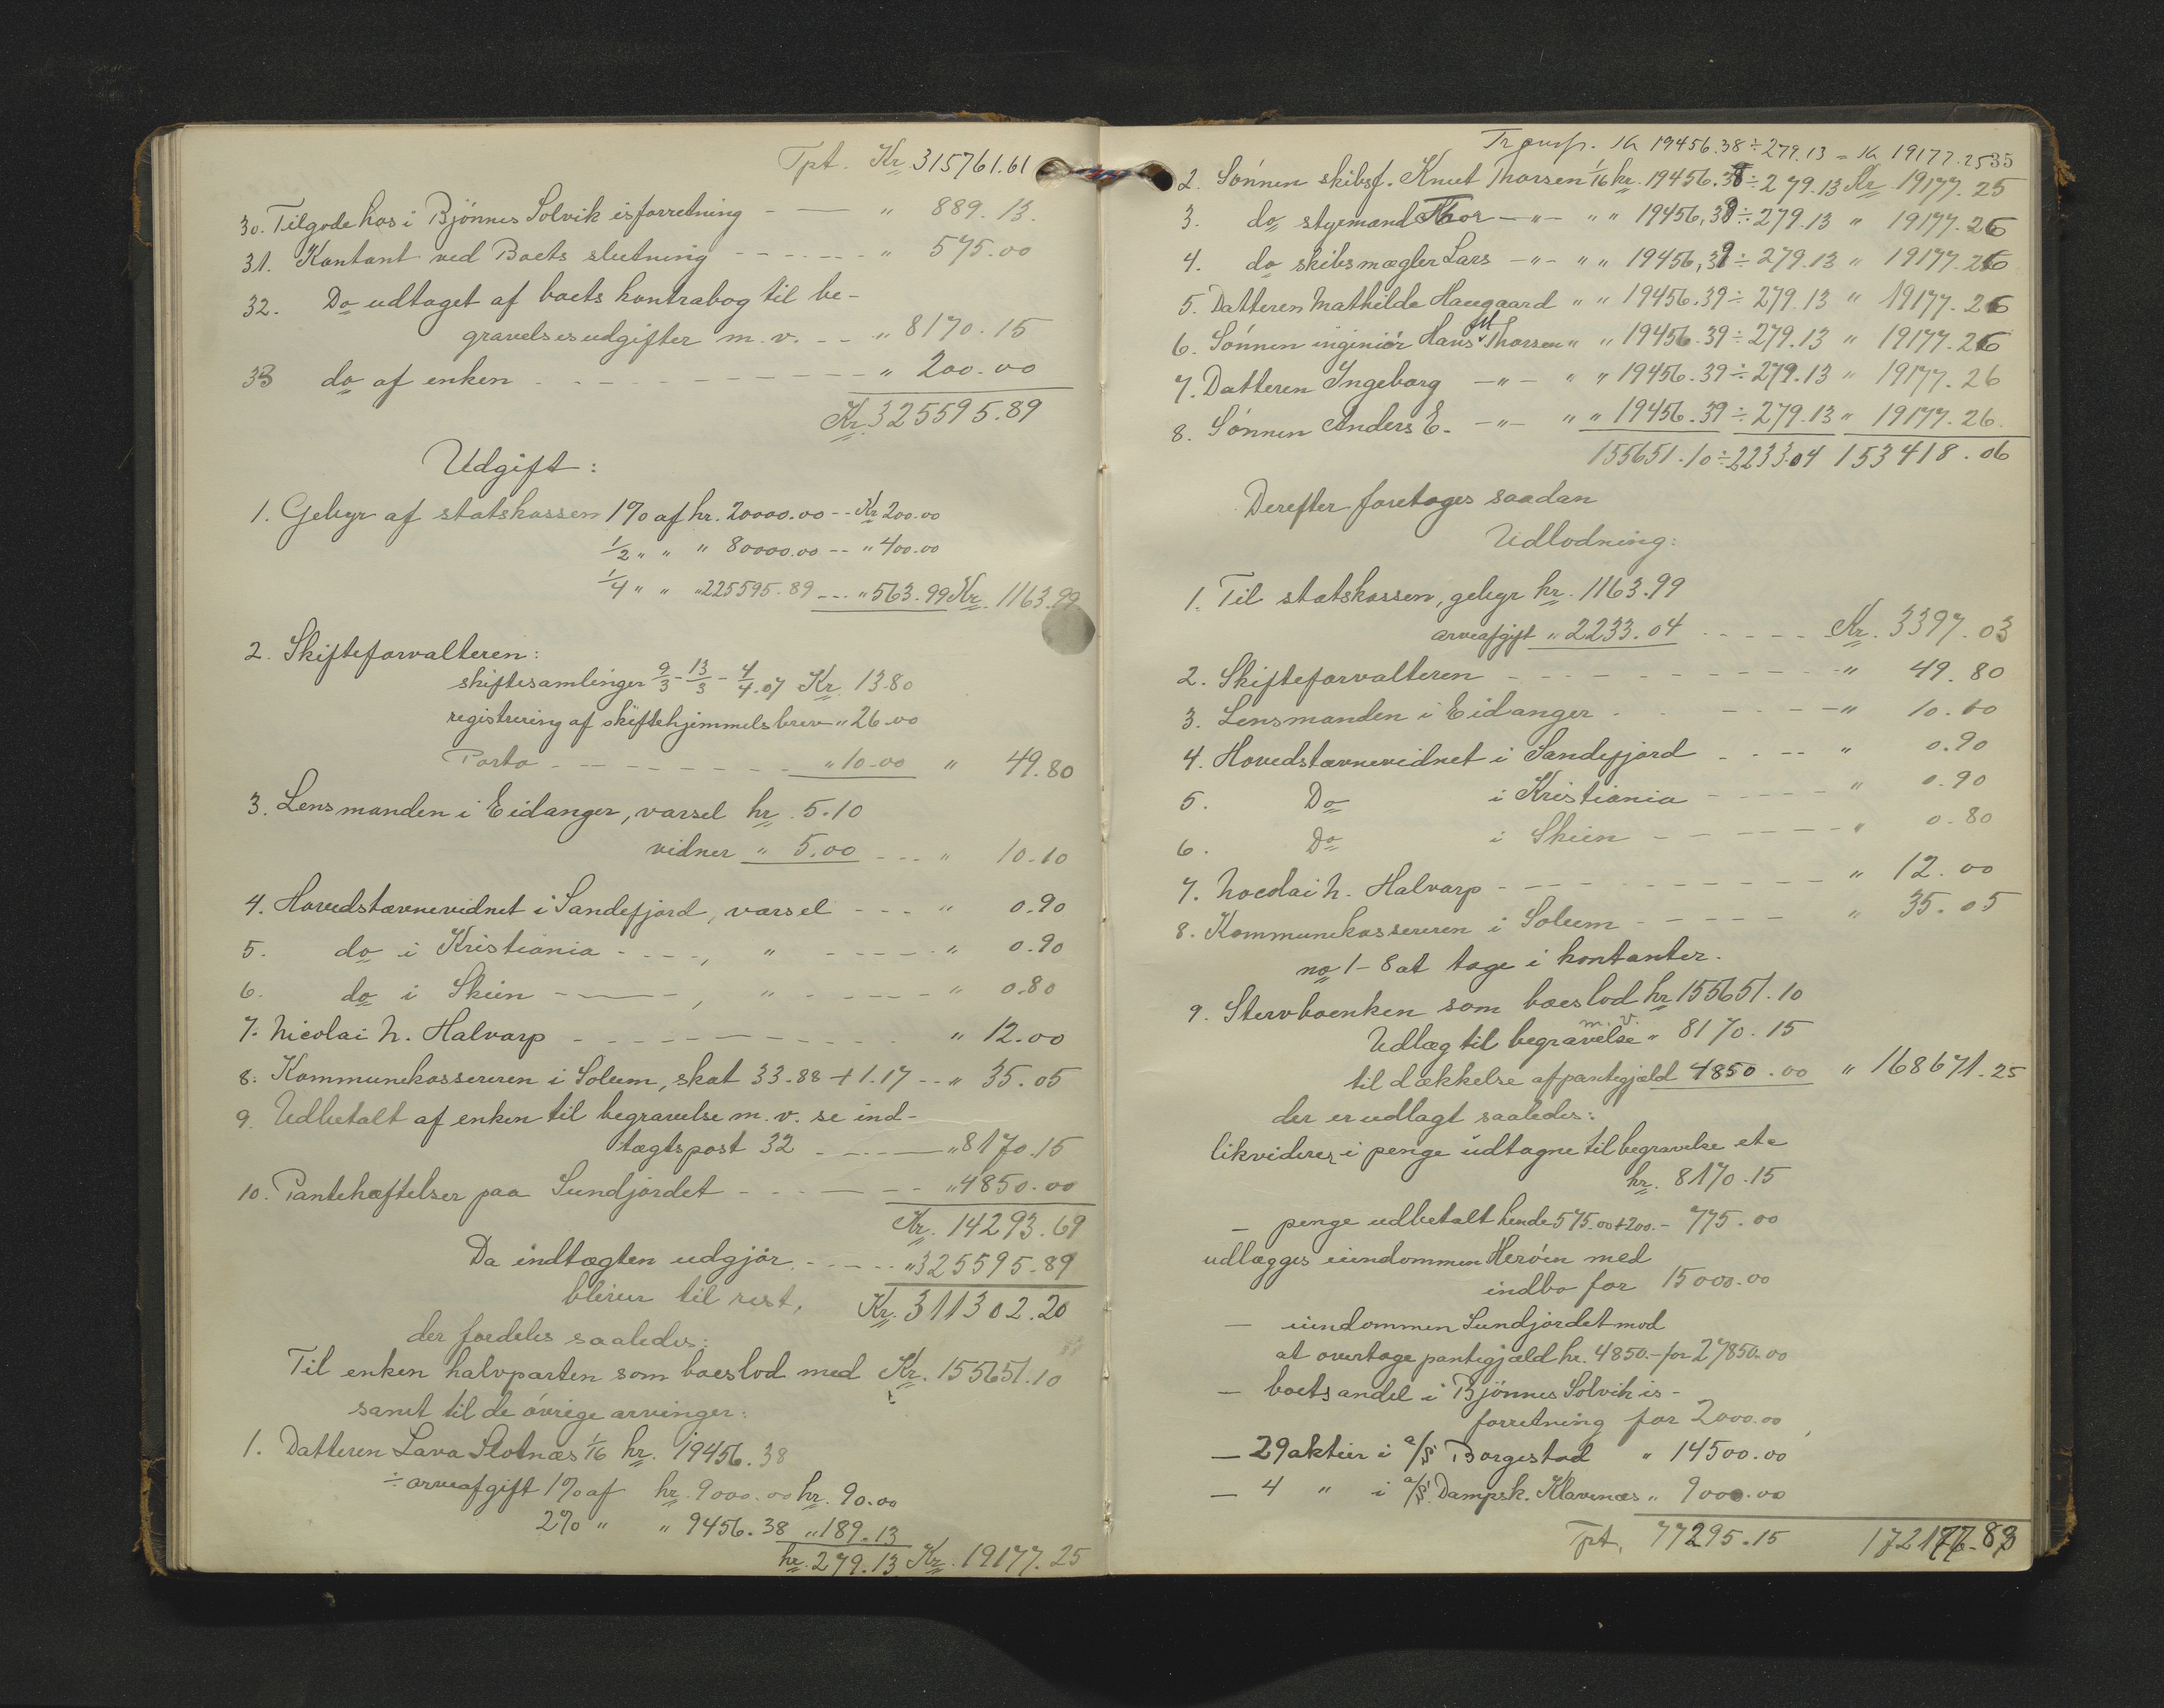 Tpt. Kr. 315761.61
30. Tilgode hos i Bjönnes Solvik isforretning - — " 889.13.
31. Kontant ved Boets slutning - - - - - - " 575.00
32. Do udtaget af boets kontrabog til be-
gravelsesudgifter m.v. - - " 8170.15
33 do af enken - - - - - - - - " 200.00
Kr. 325595.89
Udgift:
1. Gebyr af statskassen 1% af kr. 20000.00 -- Kr. 200.00
1/2 " " " 80000.00 -- " 400.00
1/4 " " " 225595.89 --- " 563.99 Kr. 1163.99
2. Skifteforvalteren:
skiftesamlinger 9/3 - 13/3 - 4/4.07 Kr. 13.80
registrering af skiftehjemmelsbrev " 26.00
Porto - - - - - - - - " 10.00 " 49.80
3. Lensmanden i Eidanger, varsel kr. 5.10
vidner " 5.00 --- " 10.10
4. Hovedstævnevidnet i Sandefjord, varsel - - - " 0.90
5. do i Kristiania - - - -, " - - - - - " 0.90
6. do i Skien - — -, " - - - - - " 0.80
7. Nicolai N. Halvarp - - - - - - - - - " 12.00
8. Kommunekassereren i Solum, skat 33.88 + 1.17 -- " 35.05
9. Udbetalt af enken til begravelse m.v. se ind-
tægtspost 32 - - - — " 8170.15
10. Panteheftelser paa Sundjordet - - - — - - " 4850.00
Kr. 14293.69
Da indtægten udgjör - - - - - " 325595.89
bliver til rest, Kr. 311302.20
der fordeles saaledes:
Til enken halvparten som boeslod med Kr. 155651.10
samt til de övrige arvinger:
1. Datteren Lava Slotnæs 1/16 kr. 19456.38
÷ arveafgift 1% af kr. 9000.00 kr. 90.00
2% " " 9456.38 " 189.13
kr. 279.13 Kr. 19177.25
Transp. Kr 19456.38 ÷ 279.13 = Kr 19177.25 35
2. Sönnen skibsf. Knut Thorsen 1/16 kr. 19456.38 ÷ 279.13 Kr. 19177.25
3. do styrmand Thor - " - " " 19456.39 ÷ 279.13 " 19177.26
4. do skibsmægler Lars - " - " " 19456.39 ÷ 279.13 " 19177.26
5. Datteren Mathilde Haugaard " " 19456.39 ÷ 279.13 " 19177.26
6. Sönnen ingeniör Hans M Thorsen " " 19456.39 ÷ 279.13 " 19177.26
7. Datteren Ingeborg - " - " " 19456.39 ÷ 279.13 " 19177.26
8. Sönnen Anders E. - " - " " 19456.39 ÷ 279.13 " 19177.26.
155651.10 ÷ 2233.04 153418.06
Derefter foretages saadan
Udlodning:
1. Til statskassen, gebyr kr. 1163.99
arveafgift " 2233.04 - - - - - Kr. 3397.03
2. Skifteforvalteren - - - - - - - - - - " 49.80
3. Lensmanden i Eidanger - - - - - " 10.10
4. Hovedstævnevidnet i Sandefjord - - - - " 0.90
5. Do i Kristiania - - - - - " 0.90
6. Do i Skien - - - - - - " 0.80
7. Nocolai N. Halvarp - - - - - - - - - " 12.00
8. Kommunekassereren i Solum - - - - - " 35.05
no 1-8 at tage i kontanter.
9. Stervboenken som boeslod kr 155651.10
Udlæg til begravelse m.v. " 8170.15
til dækkelse af pantegjæld 4850.00 " 168671.25
der er udlagt saaledes:
likviderer i penge udtagne til begravelse etc
kr. 8170.15
— penge udbetalt hende 575.00+200.- 775.00
udlægges eiendommen Heröen med
indbo for 15000.00
— eiendommen Sundjordet mod
at overtage pantegjæld kr. 4850.- for 27850.00
— boets andel i Bjönnes Solvik is-
forretning for 2000.00
— 29 aktier i a/s Borgestad " 14500.00
— 4 " i a/s. Dampsk. Klavenæs " 9000.00
Tpt. 77295.15 172177.83